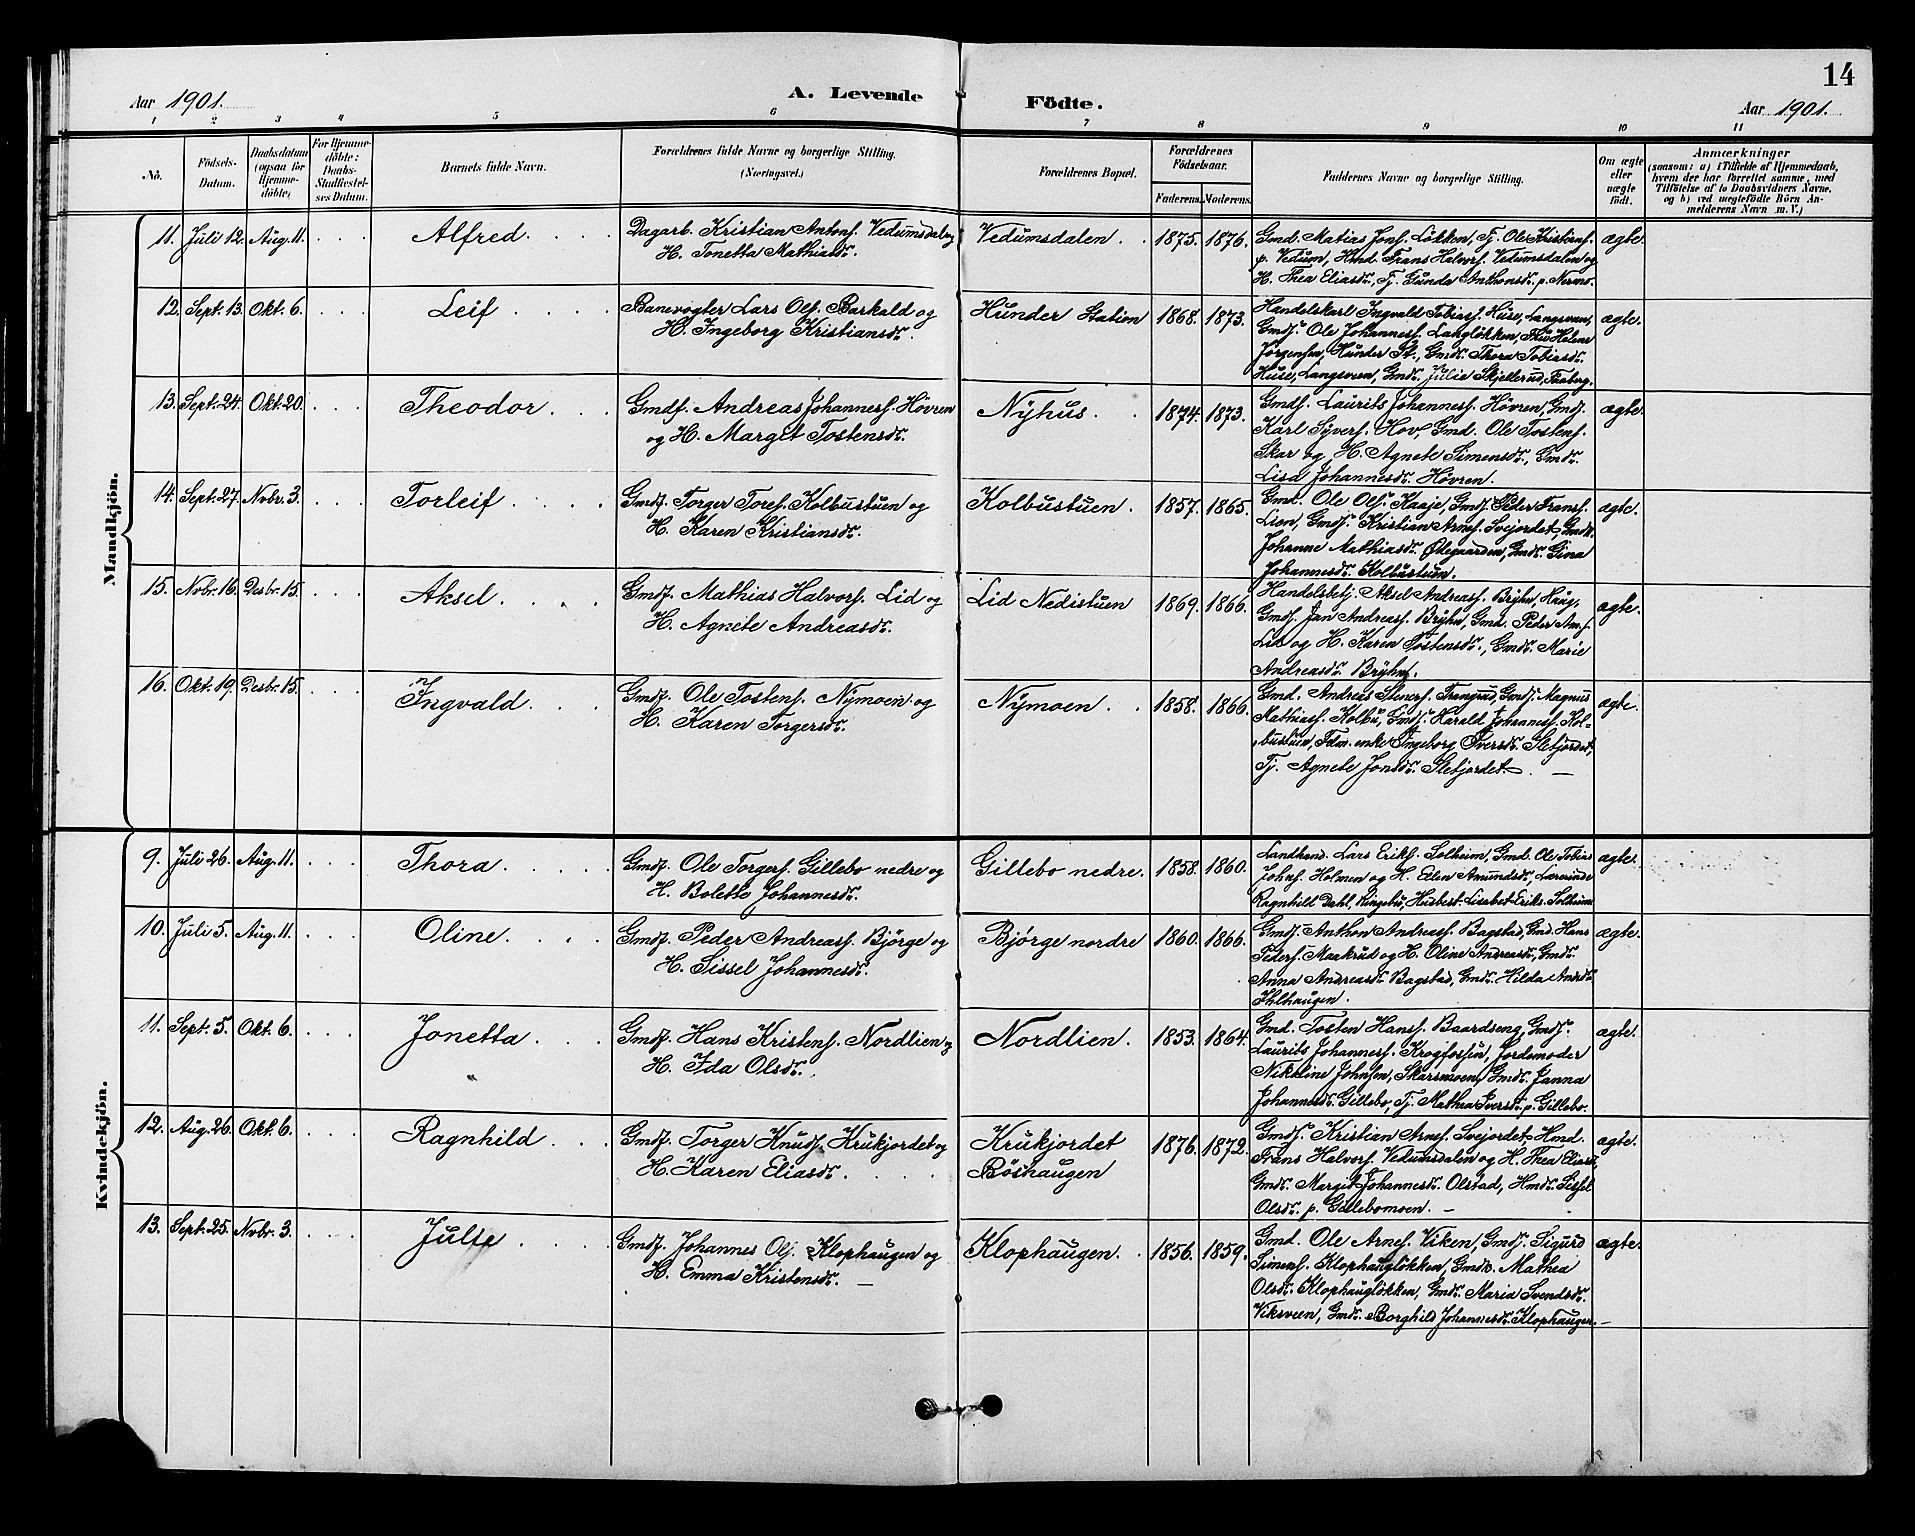 14
Aar 1901.
A. Levende
Födte.
Aar 1901.
1 2 3 4 5 6 7 8 9 10 11
No.
Födsels-
Datum.
Daabsdatum
(ogsaa for
Hjemme-
döbte)
For Hjemme-
döbte:
Daabs-
Stadfæstel-
ses Datum.
Barnets fulde Navn.
Forældrenes fulde Navne og borgerlige Stilling.
(Næringsvei.)
Forældrenes Bopæl.
Forældrenes
Födselsaar.
Faderens. Moderens.
Faddernes Navne og borgerlige Stilling.
Om ægte
eller
uægte
födt.
Anmærkninger
(saasom: a) i Tilfælde af Hjemmedaab,
hvem der har forrettet samme, med
Tilföielse af to Daabsvidners Navne,
og b) ved uægtefödte Börn An-
melderens Navn m. V.)
Mandkjön.
11. Juli 12. Aug. 11. Alfred Dagarb. Kristian Antons. Vedumsdalen
H. Tonetta Mathiasdr.
Vedumsdalen 1875. 1876.
Gmd. Matias Jons. Løkken, Tj. Ole Kristians.
p. Vedum, Hmd. Frans Halvors. Vedumsdalen og
H. Thea Eliasdr., Tj. Gunda Anthonsdr. p.
ægte.
12. Sept. 13. Okt. 6. Leif Banevogter Lars Ols. Barkald og
H. Ingeborg Kristiansdr.
Hunder Station 1868. 1873.
Handelskarl Ingvald Tobiass. Huse, Langsveen,
Gmds. Ole Johanness. Langløkken, Frk Helene
Jørgensen, Hunder St., Gmdr. Thora Tobiasdr.
Huse, Langsveen, Gmdr. Julie Skjellerud, Faaberg.
ægte.
13. Sept. 24. Okt. 20. Theodor Gmds. Andreas Johanness. Høvren
og H. Margit Tostensdr.
Nyhus. 1874. 1873.
Gmds. Laurits Johanness. Høvren, Gmds.
Karl Syvers. Hov, Gmd. Ole Tostens.
Skar og H. Agnete Simensdr., Gmdr.
Lisa Johannesdr. Høvren.
ægte.
14. Sept. 27. Novbr. 3. Torleif Gmds. Torger Tores. Kolbustuen og
H. Karen Kristiansdr.
Kolbustuen 1857. 1865.
Gmd. Ole Ols. Kaaje, Gmds. Peder Frans.
Lion, Gmds. Kristian Arnes. Svejordet, Gmdk.
Johanne Mathiasdr. Ødegaarden, Gmdr. Gina
Johannesdr. Kolbustuen.
ægte.
15. Novbr. 16. Desbr. 15. Aksel Gmds. Mathias Halvors. Lid og
H. Agnete Andreasdr.
Lid Nedistuen 1869. 1866.
Handelsbetj. Aksel Andreass. Bryhn, Haug,
Gmds. Jan Andreass. Bryhn, Gmd. Peder Am.s.
Lid og H. Karen Tostensdr., Gmdr. Marie
Andreasdr. Bryhn.
ægte.
16. Okt. 19. Desbr. 15. Ingvald Gmds. Ole Tostens. Nymoen og
H. Karen Torgersdr.
Nymoen. 1858. 1866.
Gmd. Andreas Steners. Trangrud, Gmds. Magnus
Mathiass. Kolbu, Gmds. Harald Johanness. Kol-
bustuen, Fdm. enke Ingeborg Iversdr. Sletjordet,
Tj. Agnete Jonsdr. Sletjordet.
ægte.
Kvindekjön.
9. Juli 26. Aug. 11. Thora Gmds. Ole Torgers. Gillebo nedre og
H. Bolette Johannesdr.
Gillebo nedre. 1858. 1860.
Landhand. Lars Eriks. Solheim, Gmd. Ole Tobias
Johns. Holmen og H. Ellen Amundsdr., Lærerinde
Ragnhild Dahl, Ringebu, Husbest. Lisabet Eriks. Solheim
ægte.
10. Juli 5. Aug. 11. Oline Gmds. Peder Andreass. Bjørge og
H. Sissel Johannesdr.
Bjørge nordre 1860. 1866.
Gmds. Anthon Andreass. Bagstad, Gmd. Hans
Peders. Maakrud og H. Oline Andreasdr., Gmdr.
Anna Andreasdr. Bagstad, Gmdr. Hilda Andr.dr.
Ihlhaugen.
ægte.
11. Sept. 5. Okt. 6. Jonetta Gmds. Hans Kristens. Nordlien og
H. Ida Olsdr.
Nordlien. 1853. 1864.
Gmd. Tosten Hanss. Baardseng, Gmds.
Laurits Johanness. Krogfossen, Jordemoder
Nikoline Johnsen, Skarsmoen, Gmdr. Janna
Johannesdr. Gillebo, Tj. Mathea Iversdr. p. Gillebo.
ægte.
12. Aug. 26. Okt. 6. Ragnhild Gmds. Torger Knuds. Krukjordet og
H. Karen Eliasdr.
Krukjordet
Bøshaugen
1876. 1872.
Gmds. Kristian Arnes. Svejordet, Hmd.
Frans Halvors. Vedumsdalen og H. Thea Eliasd,
Gmdr. Margit Johannesdr. Olstad, Hmdr. Sissel
Olsdr. p. Gillebomoen.
ægte.
13. Sept. 25. Novbr. 3. Julie Gmds. Johannes Ols. Klophaugen og
H. Emma Kristensdr.
Klophaugen. 1856. 1859.
Gmd. Ole Arnes. Viken, Gmds. Sigurd
Simens. Klophaugløkken, Gmdk. Mathea
Olsdr. Klophaugløkken, Gmdr. Maria Svendsdr.
Viksveen, Gmdr. Borghild Johannesdr. Klophaugen.
ægte.